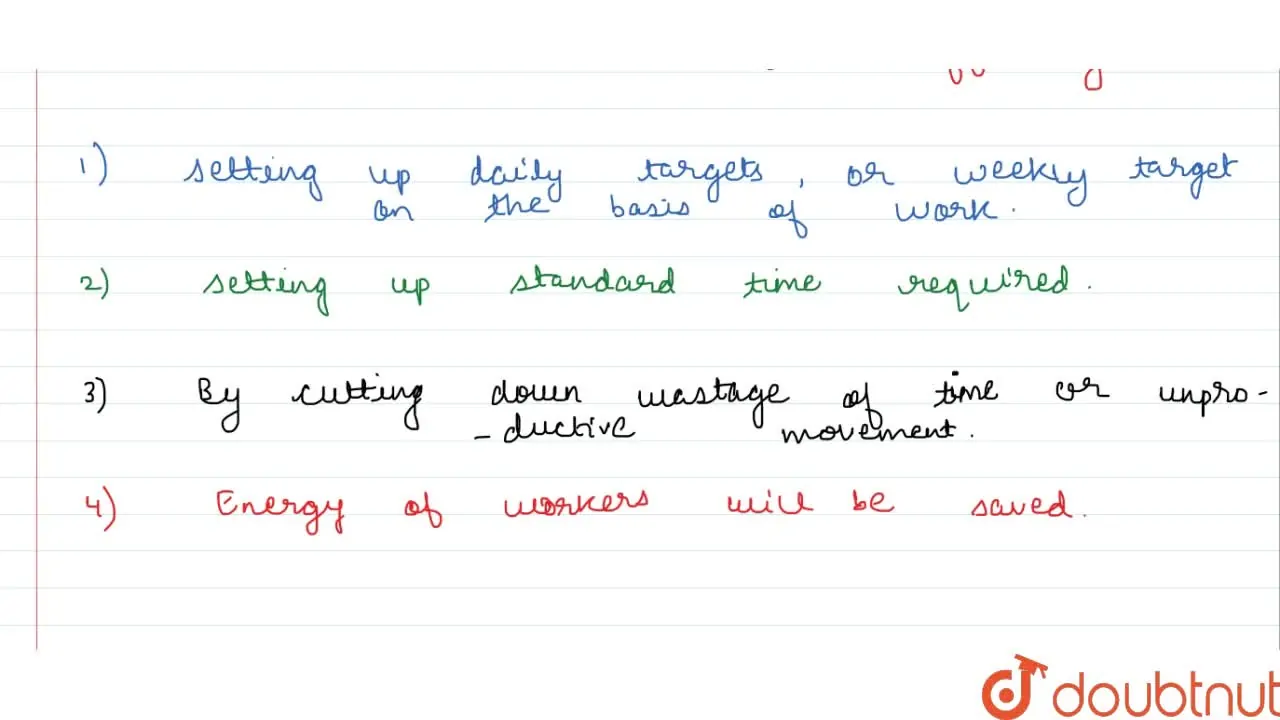 1) setting up daily targets, or weekly target
on the basis of work.
2) setting up standard time required.
3) By cutting down wastage of time or unpro-
- ductive movement.
4) Energy of workers will be saved.
doubtnut